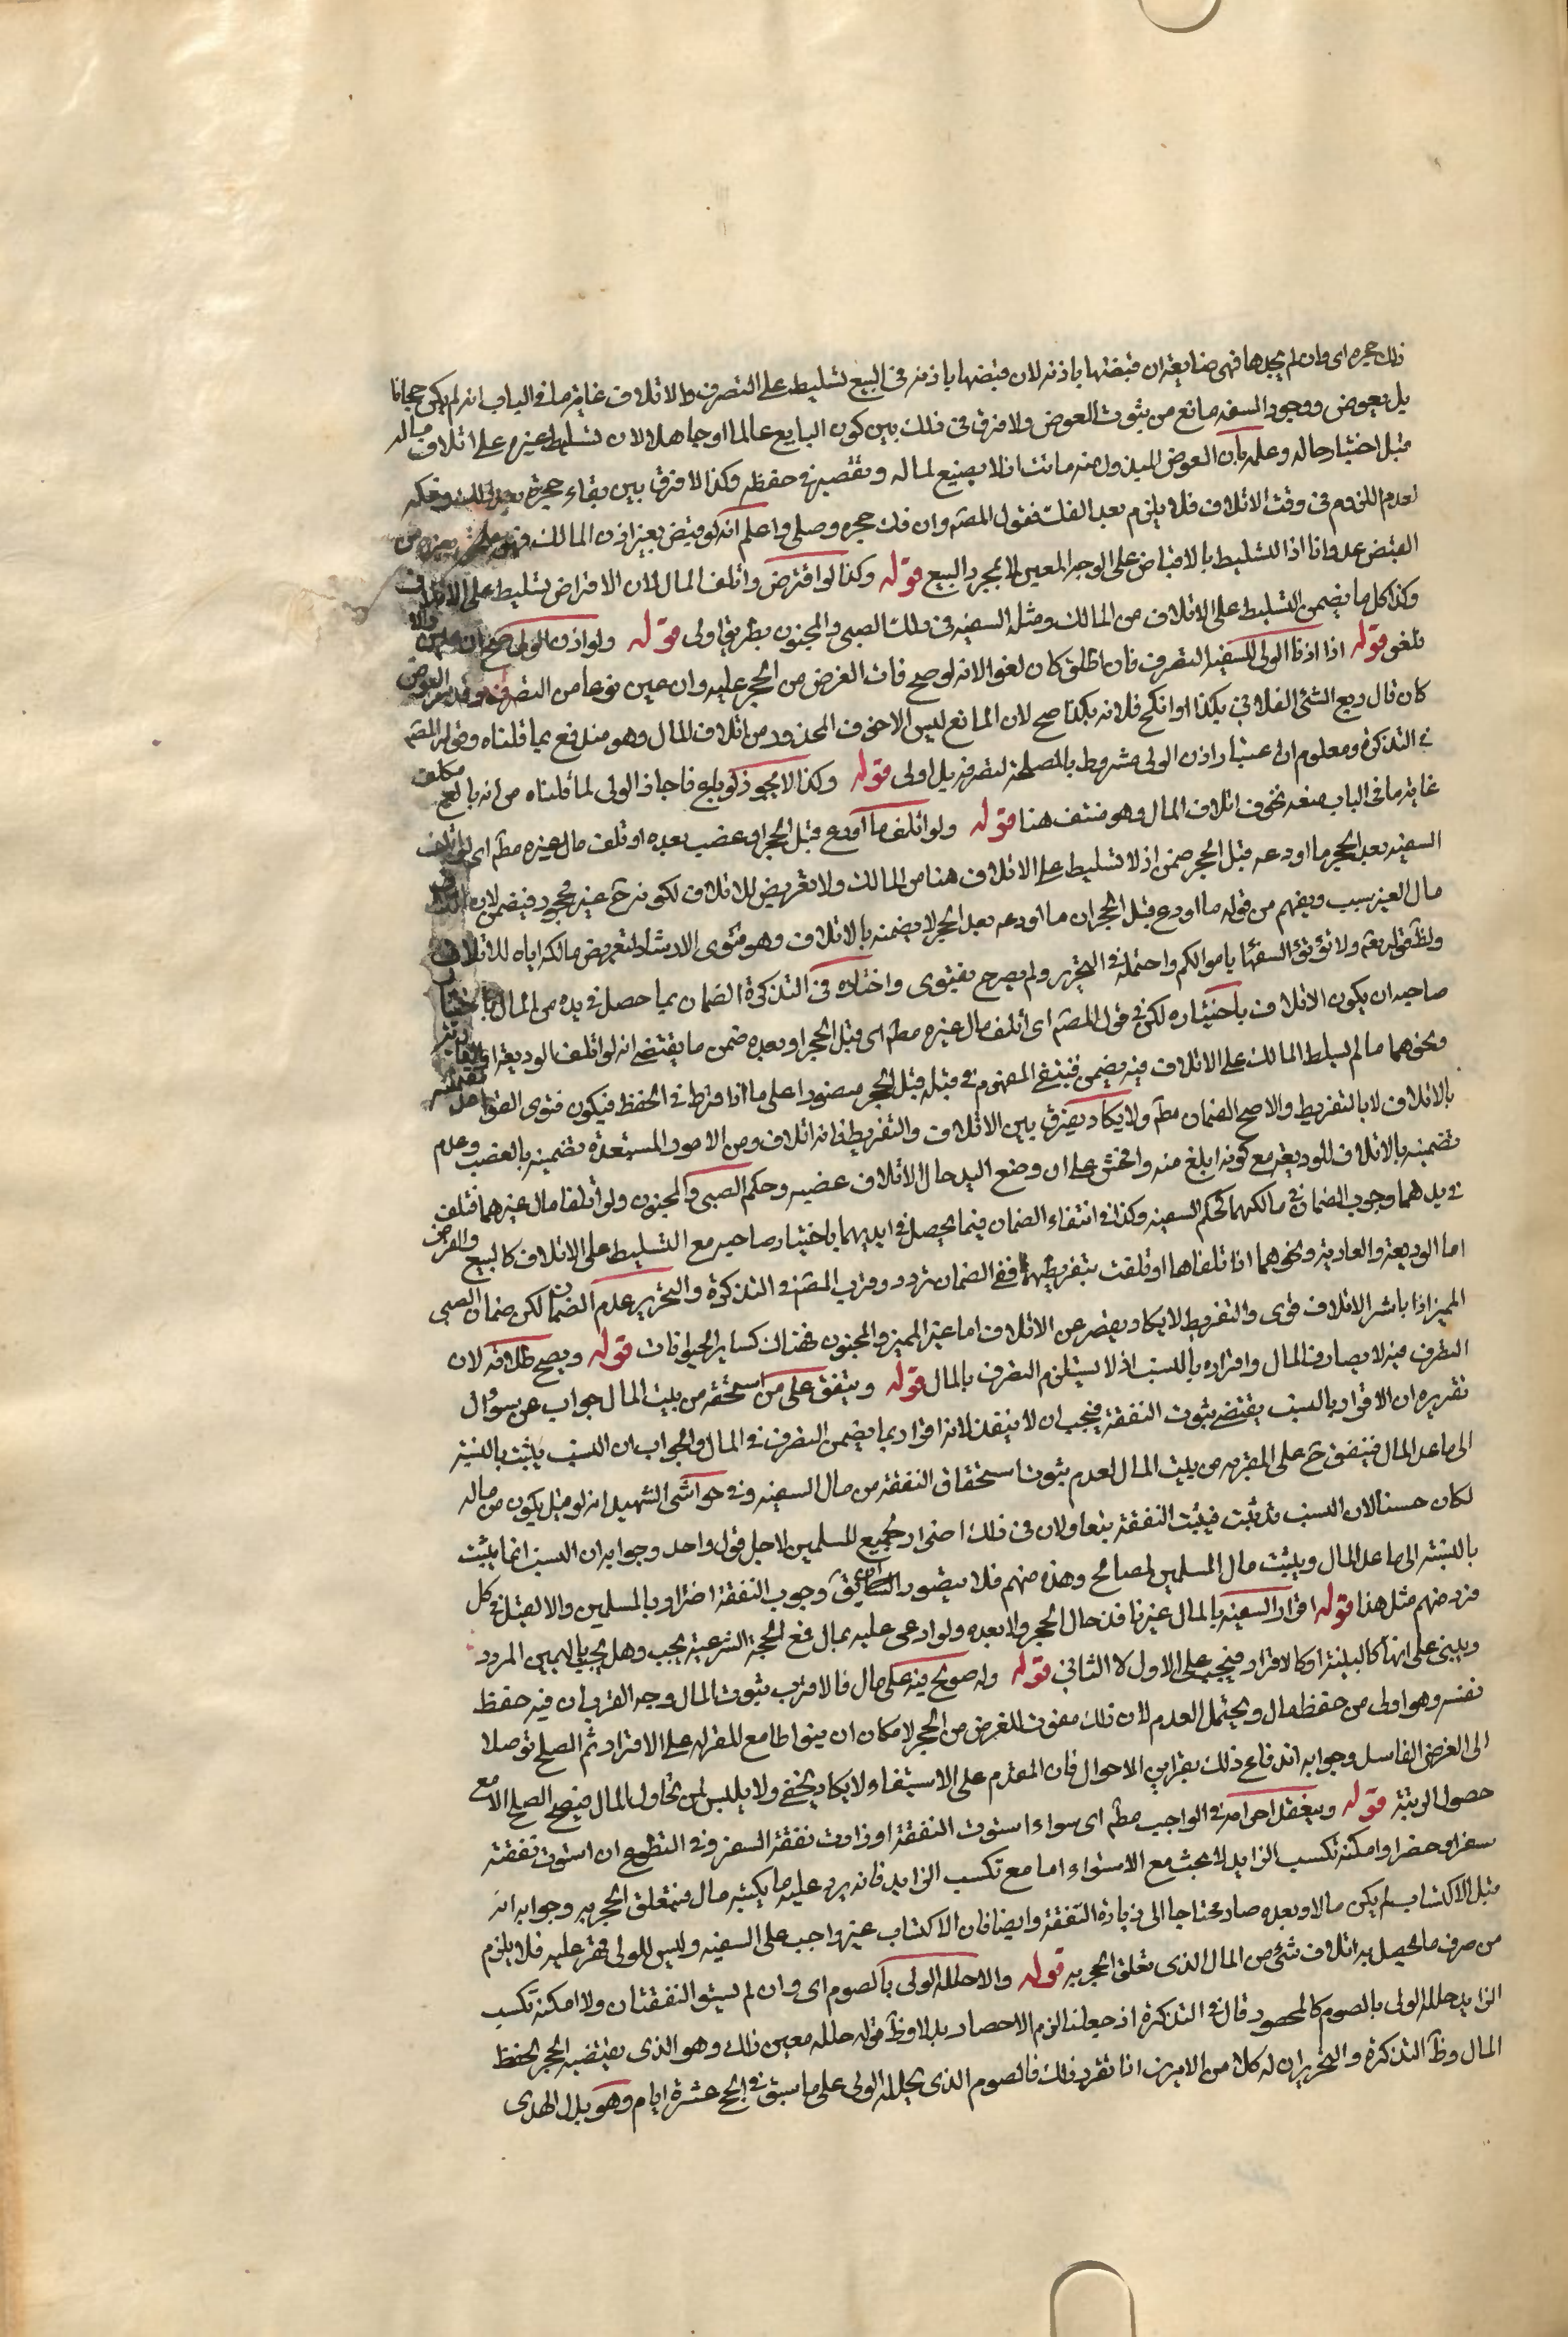 فك حجره اى وان لم يجدها فهى ضايعة ان قبضها باذنه لان قبضها باذنه فى البيع تسليط على التصرف والاتلاف غاية ما فى الباب انه لم يكن مجانا
بل بعوض ووجود السفه مانع من ثبوت العوض ولا فرق فى ذلك بين كون البايع عالما او جاهلا لان تسليط غيره على اتلاف ماله
قبل اختبار حاله وعلمه بان العوض المبذول منه ما نشا تضييع لماله وتقصير فى حفظه وكذا لا فرق بين بقاء حجره بعد ذلك وفكه
لعدم اللزوم فى وقت الاتلاف فلا يلزم بعد الفك فقول المصنف وان فك حجره وصلى واعلم انه لو قبض بغير اذن المالك فهو
القبض عدوانا اذا التسليط بالاقباض على الوجه المعين لا بمجرد البيع قوله وكذا لو اقترض واتلف المال لان الاقراض تسليط على الاتلاف
وكذا كل ما يضمن التسليط على الاتلاف من المالك ومثل السفيه فى ذلك الصبى والمجنون بطريق اولى قوله ولو اذن الولى صح ان عين والا
تلغى قوله اذا اذن الولى للسفيه التصرف فان اطلق كان لغوا لانه لو صح فات الغرض من الحجر عليه وان عين نوعا من التصرف وقدر العوض
كان قال ربع الشئ الفلانى بكذا او انكح فلانة بكذا صح لان المانع ليس الا خوف المحذور من اتلاف المال وهو مندفع بما قلناه وقوله المصنف
فى التذكرة ومعلوم ان اعتبار اذن الولى مشروط بالمصلحة لتصرفه بل اولى قوله وكذا الا يجوز لو بلغ فاجاز الولى لما قلناه من انه بالغ مكلف
غاية ما فى الباب منعه لخوف اتلاف المال وهو منتف هنا قوله ولو اتلف ما اودع قبل الحجر او غصب بعده او تلف مال غيره مطم اى لو اتلف
السفيه بعد الحجر ما اودعه قبل الحجر ضمن اذ لا تسليط على الاتلاف هنا من المالك ولا تعريض للاتلاف لكونه ح غير محجور فيضمن لان اتلاف
مال الغير سبب ويفهم من قوله ما اودع قبل الحجر ان ما اودعه بعد الحجر لا يضمنه بالاتلاف وهو فتوى الارشاد لتعريض مالكه اياه للاتلاف
ولظ قوله تعم ولا تؤتوا السفهاء اموالكم واحتمله فى التحرير ولم يصرح بفتوى واختاره فى التذكرة الضمان بما حصل فى يده من المال باختيار
صاحبه ان يكون الاتلاف باختياره لكن فى قول المصنف اى اتلف مال غيره مطم اى قبل الحجر او بعده ضمن ما يقتضى انه لو اتلف الوديعة او العارية
ونحوهما ما لم يسلط المالك على الاتلاف فيه يضمن فينتفى المفهوم فى قبله قبل الحجر مقصورا على ما اذا فرط فى الحفظ فيكون فتوى القواعد
بالاتلاف لا بالتفريط والاصح الضمان مطم ولا يكاد يفرق بين الاتلاف والتفريط فانه اتلاف ومن الامور المستبعدة تضمينه بالغصب وعدم
تضمينه بالاتلاف للوديعة مع كونه ابلغ منه وافحش على ان وضع اليد حال الاتلاف غصب وحكم الصبى والمجنون ولو اتلفا مال غيرهما فتلف
فى يدهما وجوب الضمان فى مالكهما كحكم السفيه وكذا فى انتفاء الضمان فيما يحصل فى ايديهما باختيار صاحبه مع التسليط على الاتلاف كالبيع والقرض
اما الوديعة والعارية ونحوهما اذا تلفاها او تلفت بتفريطهما ففى الضمان تردد وقرب المصنف فى التذكرة والتحرير عدم الضمان لكن ضمان الصبى
المميز اذا باشر الاتلاف قوى والتفريط لا يكاد يقصر عن الاتلاف اما غير المميز والمجنون فهناك كساير الحيوانات قوله ويصح طلاقه لان
التصرف فيه لا يصادف المال واقراره بالنسب اذ لا يستلزم التصرف بالمال قوله وينفق على من استلحقه من بيت المال جواب عن سوال
تقريره ان الاقرار بالنسب يقتضى ثبوت النفقة فيجب ان لا ينفذ لانه اقرار بما يضمن التصرف فى المال والجواب ان النسب يثبت بالنسبة
الى ما عدا المال فينفق ح على المقر به من بيت المال لعدم ثبوت استحقاق النفقة من مال السفيه وفى حواشى الشهيد انه لو قيل يكون من ماله
لكان حسنا لان النسب قد ثبت فيثبت النفقة تبعا ولان فى ذلك اضرار بجميع المسلمين لاجل قول واحد وجوابه ان النسب انما يثبت
بالنسبة الى ما عدا المال وبيت مال المسلمين لمصالح وهذه منهم فلا يتصور وجوب النفقة اضرار بالمسلمين والا لقيل فى كل
فرد منهم مثل هذا قوله اقرار السفيه بالمال غير نافذ حال الحجر ولا بعده ولو ادعى عليه بمال فمع الحجة الشرعية يجب وهل يجب باليمين المردودة
ويبنى على انها كالبينة او كالاقرار فيجب على الاول لا الثانى قوله وله صولح فيه على مال فالاقرب ثبوت المال وجه القرب ان فيه حفظ
نفسه وهو اولى من حفظ المال ويحتمل العدم لان ذلك مفوت للغرض من الحجر لامكان ان يتواطا مع المقر له على الاقرار ثم الصلح توصلا
الى الغرض الفاسد وجوابه اندفاع ذلك بقراين الاحوال فان المقدم على الاستيفاء لا يكاد يخفى ولا يلتبس لمن يحاول المال فيصح الصلح الا مع
حصول الريبة قوله وينعقد احرامه فى الواجب مطم اى سواء استوت النفقة او زادت نفقة السفر وفى التطوع ان استوت نفقته
سفرا وحضرا وامكنه تكسب الزايد لا بحث مع الاستواء اما مع تكسب الزايد فانه يرد عليه ما يكتسبه مال فيتعلق الحجر به وجوابه انه
قبل الاكتساب لم يكن مالا وبعده صار محتاجا الى زيادة النفقة وايضا فان الاكتساب غير واجب على السفيه وليس للولى قهره عليه فلا يلزم
من صرف ما يحصل به اتلاف شئ من المال الذى تعلق الحجر به قوله والا حلله الولى بالصوم اى وان لم يستو النفقتان ولا امكنه تكسب
الزايد حلله الولى بالصوم كالمحصور قال فى التذكرة اذ جعلنا لزم الاحصار بدلا وظ قوله حلله معين ذلك وهو الذى يقتضيه الحجر لحفظ
المال وظ التذكرة والتحرير ان له كلا من الامرين اذا تقرر ذلك فالصوم الذى يحلله الولى على ما سبق فى الحج عشرة ايام وهو بدل الهدى